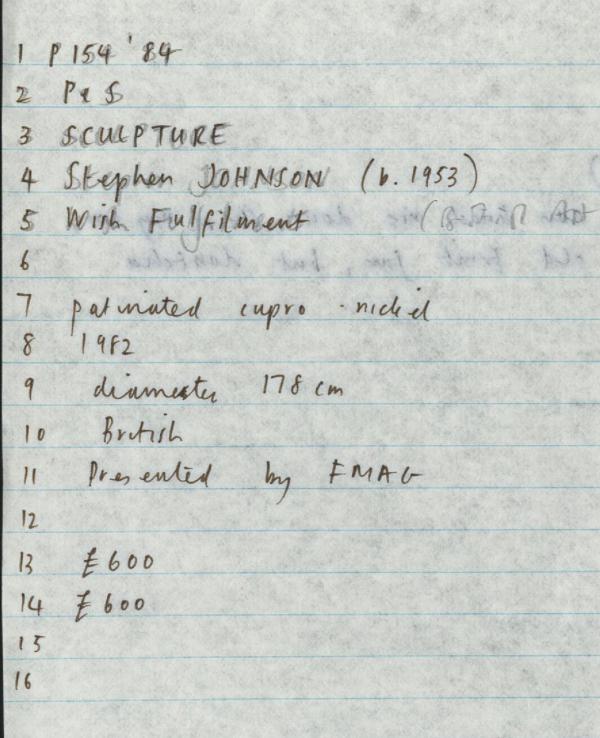 1 P 154 '84
2 P & S
3 SCULPTURE
4 Stephen JOHNSON (b. 1953)
5 Wish Fulfilment
6
7 patinated cupro-nickel
8 1982
9 diameter 178 cm
10 British
11 Presented by FMAG
12
13 £600
14 £600
15
16